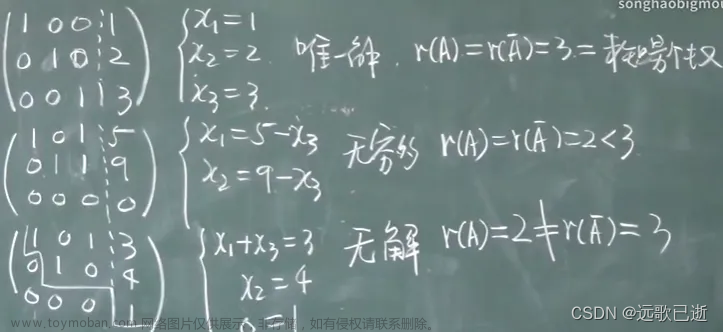 songhaobigmou
(1 0 0 ⋮ 1
0 1 0 ⋮ 2
0 0 1 ⋮ 3)
{x₁=1
x₂=2
x₃=3
唯一解. r(A)=r(Ā)=3=未知量个数
(1 0 1 ⋮ 5
0 1 1 ⋮ 9
0 0 0 ⋮ 0)
{x₁=5-x₃
x₂=9-x₃
无穷多 r(A)=r(Ā)=2<3
(1 0 1 ⋮ 3
0 1 0 ⋮ 4
0 0 0 ⋮ 1)
{x₁+x₃=3
x₂=4
0=1
无解 r(A)=2≠r(Ā)=3
www.toymoban.com 网络图片仅供展示,非存储,如有侵权请联系删除。
CSDN @远歌已逝